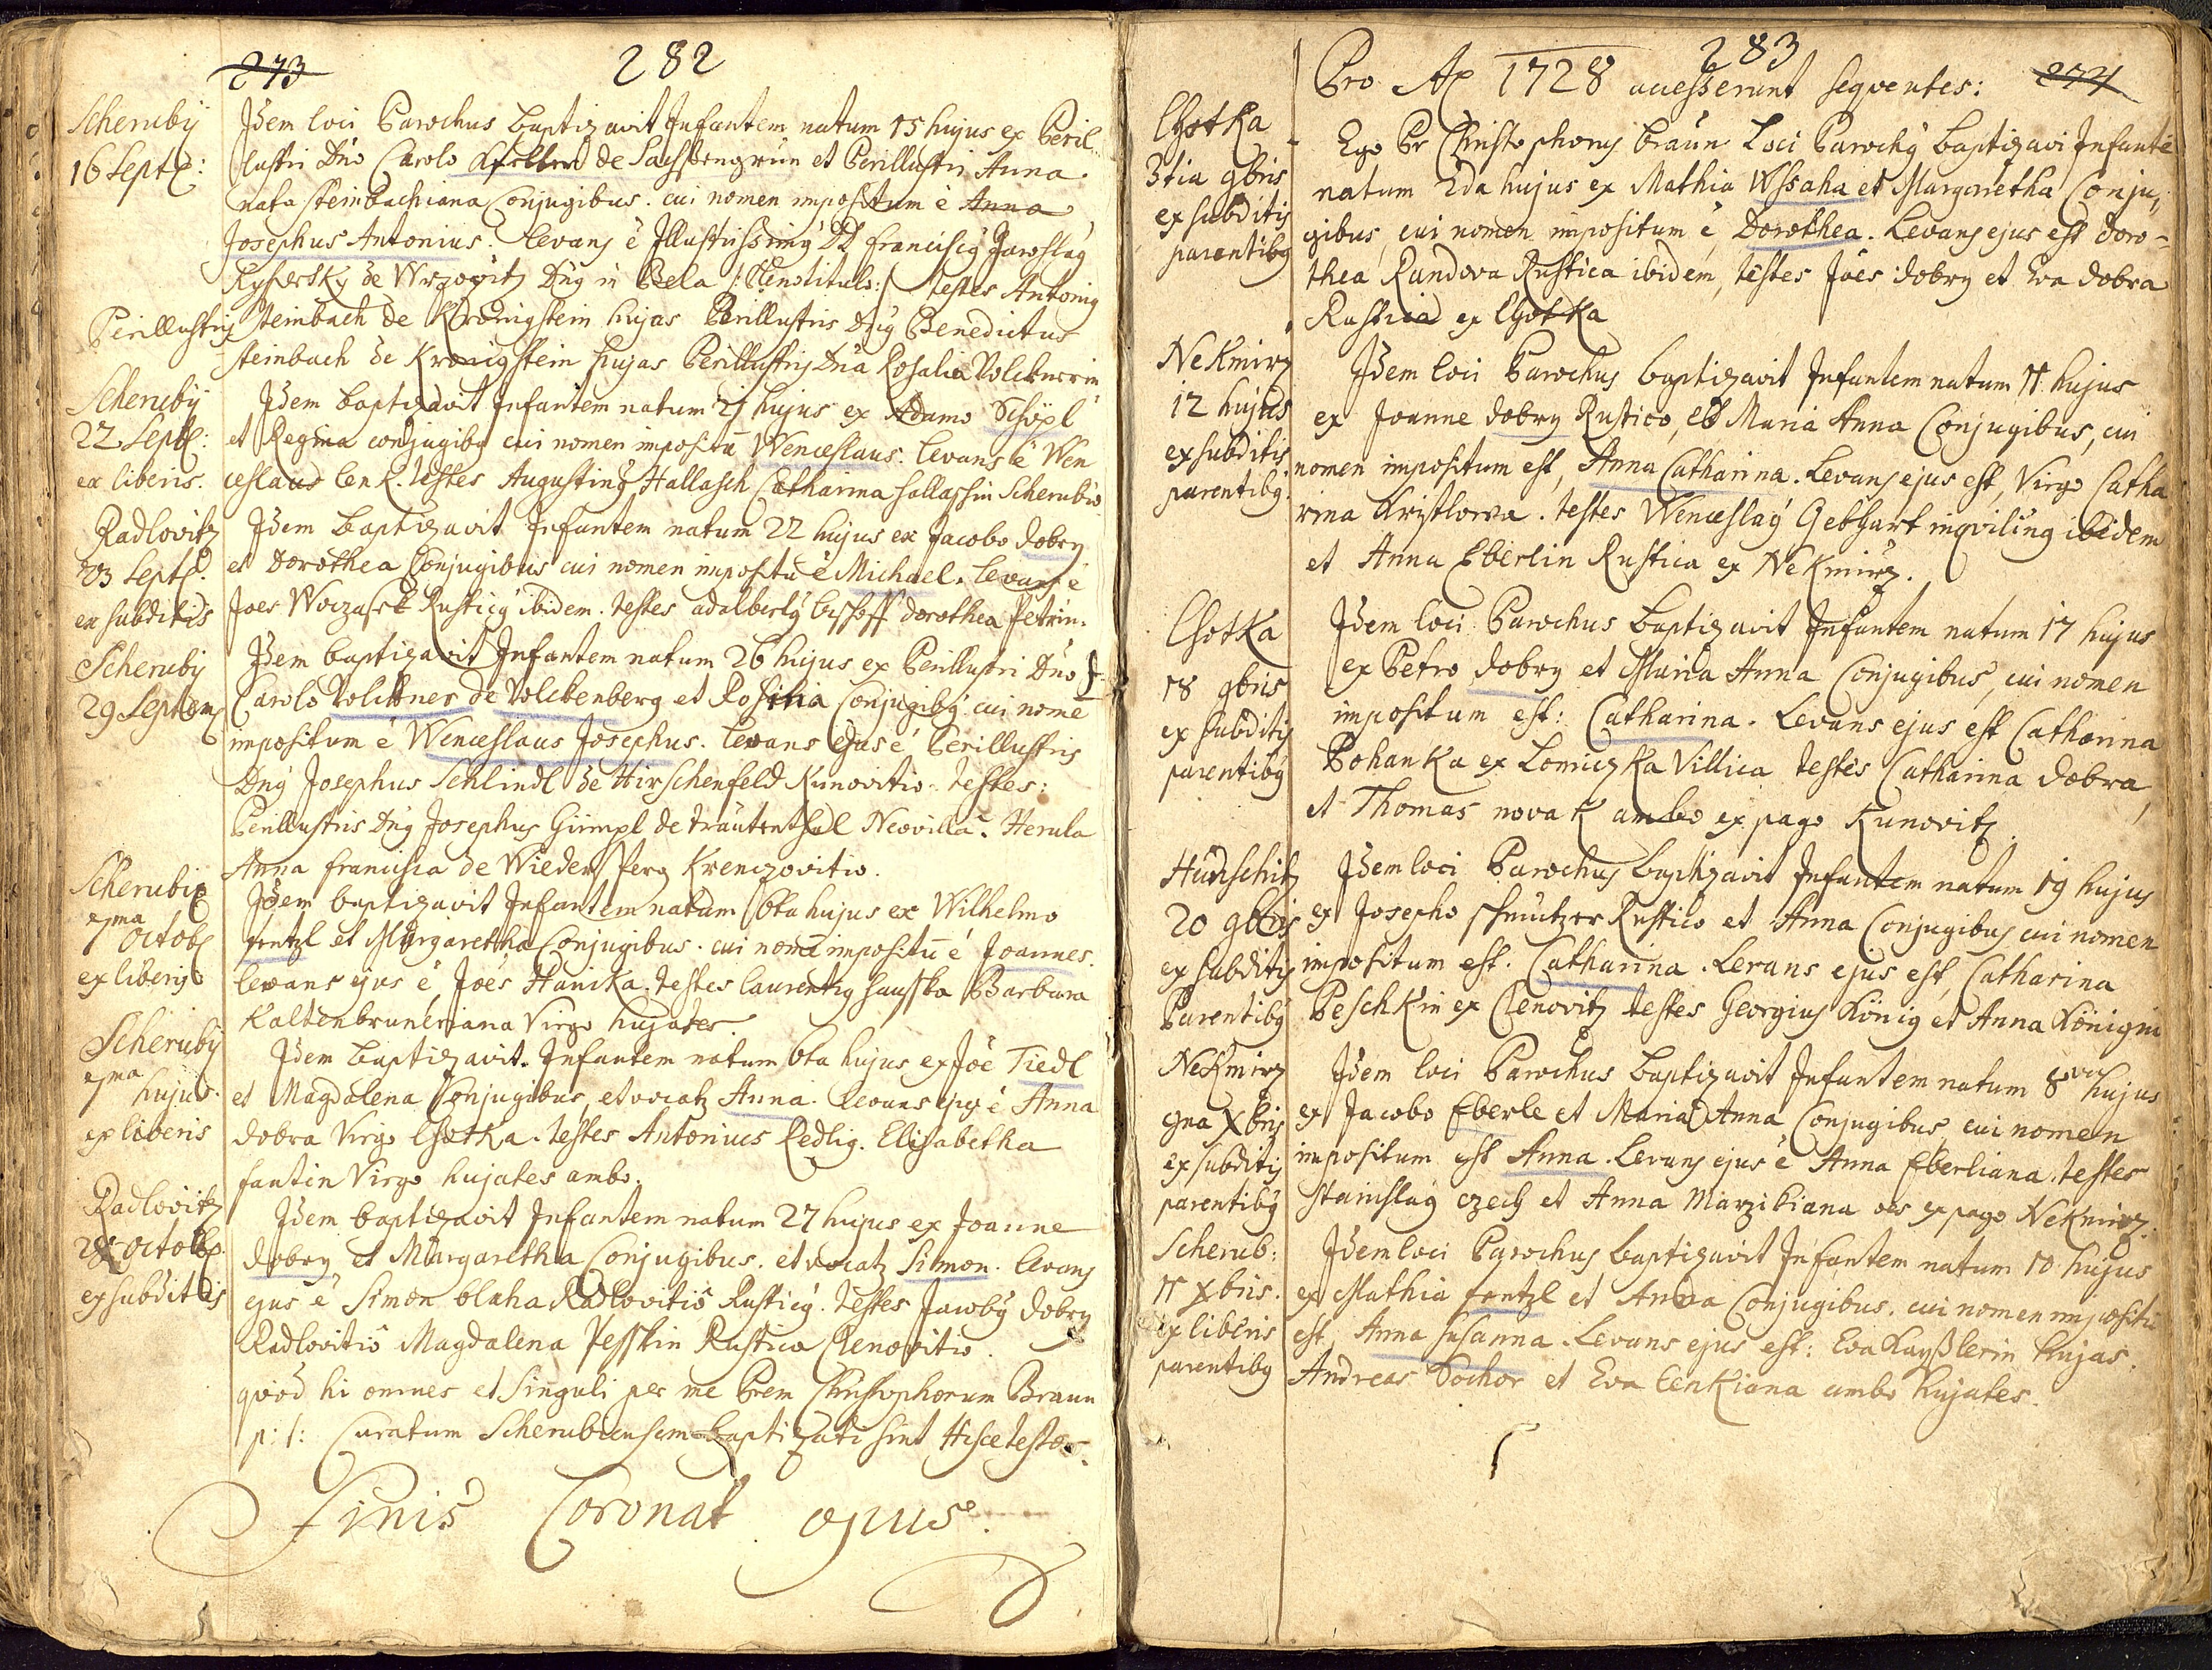 273 282
Scheruby Idem loci Parochus baptizavit Infantem natum 15 hujus ex Peril-
16 Septbr: lustri Dno Carolo de Sachsengrün et Perillustri Anna
nata Steinbachiana Conjugibus. cui nomen impositum è Anna
Josephus Antonius. Levans è Illustrissimg DD Franciscg Jaroslag
de Wrzowitz Dng in Bela testes Antonig
Perillustris Steinbach de Kronigstein hujas Perillustris Dng Benedictus
Steinbach de Kronigstein hujas Perillustris Dna Rosalia Volcknerin
Scheruby Idem baptizavit Infantem natum 21 hujus ex Adamo Schöpl
22 Septbr: et Regina conjugibg cui nomen impositū Wenceslaus. Levans è Wen
ex liberis. ceslaus Cenk. testes Augusting Hallasch Catharina hallassin Scherubio
Radlovitz Idem baptizavit Infantem natum 22 hujus ex Jacobo dobry
23 Septbr. et Dorothea Conjugibus cui nomen impositū è Michael. Levans è
ex subditis Joes Rusticg ibidem. testes adalbertg bischoff dorothea Petrin.
Scheruby Idem baptizavit Infantem natum 26 hujus ex Perillustri Dno
29 Septem Carolo Volckner de Volckenberg et Rosina Conjugibg cui nomē
impositum è Wenceslaus Josephus. Levans ejus è Perillustris
Dng Josephus Schlindl de Hirschenfeld Kunovitio. testes:
Perillustris Dng Josephus Gimpl de trautenthal Neovilla. Herula
Anna francisca de Wiedersperg Krenczovitio.
Scheruby Idem baptizavit Infantem natum 6ta hujus ex Wilhelmo
7ma Octob fentzl et Margaretha Conjugibus. cui nomē impositū è Joannes.
ex liberis Levans ejus è Joēs Hanika. testes laurentig hausska Barbara
Kaltenbruneriana Virgo hujates.
Scheruby Idem baptizavit Infantem natum 6ta hujus ex Joē Tiedl
7ma hujus. et Magdalena Conjugibus, et vocatz Anna. Levans ejus è Anna
ex liberis dobra Virgo Chotka. testes Antonius Redlig. Elisabetha
fantin Virgo hujates ambo.
Radlovitz Idem baptizavit Infantem natum 27 hujus ex Joanne
28 Octob. dobry et Margaretha Conjugibus. et vocatz Simon. Levans
ex subditis ejus è Simon blaha Radlovitio Rusticg. testes Jacobg dobry
Radlovitio Magdalena Pesskin Rustica Clenovitio.
quod hi omnes et singuli per me Prem Christophorum Braun
p: t: Curatum Scherubiensem baptizati sint Hisce testor.
Finis Coronat opus.
283 274
Pro Ao 1728 accesserunt seqventes:
Chotka Ego Pr Christophorg Braun Loci Parochg baptizavi Infantē
3tia 9bris natum 2da hujus ex Mathia Wssaha et Margaretha Conju,,
ex subditis gibus, cui nomen impositum è, Dorothea. Levans ejus est doro=
parentibg thea Randova Rustica ibidem, testes Joēs dobry et Eva dobra
Rustica ex Chotka
Nekmirz Idem loci Parochus baptizavit Infantem natum 11. hujus
12 hujus ex Joanne dobry Rustico, et Maria Anna Conjugibus, cui
ex subditis nomen impositum est, Anna Catharina. Levans ejus est, Virgo Catha
parentibg. rina Kristlowa. testes Wenceslag Gebhart inqviling ibidem
et Anna Eberlin Rustica ex Nekmirz.
Chotka Idem loci Parochus baptizavit Infantem natum 17 hujus
18 9bris ex Petro dobry et Maria Anna Conjugibus, cui nomen
ex subditis impositum est: Catharina. Levans ejus est Catharina
parentibg Pohanka ex Lomiczka Villica testes Catharina dobra,
et Thomas novak ambo ex pago Kunovitz.
Hünschitz Idem loci Parochus baptizavit Infantem natum 19 hujus
20 9bris ex Josepho schnutzer Rustico et Anna Conjugibus cui nomen
ex subditis impositum est. Catharina. Levans ejus est, Catharina
Parentibg Peschkin ex Clenovitz testes Georgius König et Anna Königin
Nekmirz Idem loci Parochus baptizavit Infantem natum 8va hujus
9na Xbris ex Jacobo Eberle et Maria Anna Conjugibus, cui nomen
ex subditis impositum est Anna. Levans ejus è Anna Eberliana. testes
parentibg Stanislag czech et Anna Marzikiana oēs ex pago Nekmirz.
Scherub: Idem loci Parochus baptizavit Infantem natum 10. hujus
11 Xbris. ex Mathia fentzl et Anna Conjugibus. cui nomen impositū
ex liberis est, Anna Susanna. Levans ejus est: Eva Kayßlerin hujas.
parentibg Andreas Sochor et Eva Cenkiana ambo hujates.